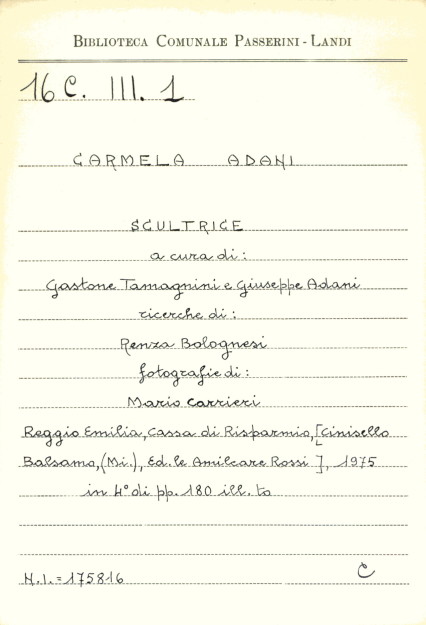 BIBLIOTECA COMUNALE PASSERINI - LANDI
16 C. III. 1
CARMELA ADANI
SCULTRICE
a cura di:
Gastone Tamagnini e Giuseppe Adani
ricerche di:
Renza Bolognesi
fotografie di:
Mario Carrieri
Reggio Emilia, Cassa di Risparmio, [Cinisello
Balsamo, (Mi.), Ed.le Amilcare Rossi ], 1975
in 4° di pp. 180 ill. to
N.I. = 175816
C